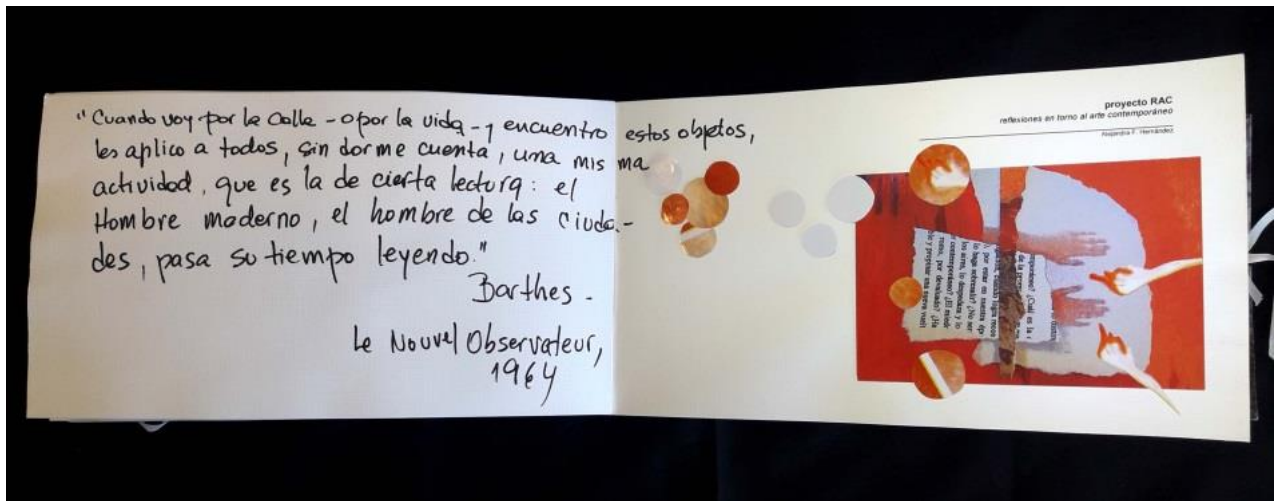 "Cuando voy por la calle - o por la vida - y encuentro estos objetos,
les aplico a todos, sin darme cuenta, una mis ma
actividad, que es la de cierta lectura: el
Hombre moderno, el hombre de las ciuda.-
des, pasa su tiempo leyendo."
Barthes.
Le Nouvel Observateur,
1964
proyecto RAC
reflexiones en torno al arte contemporáneo
Alejandra F. Hernández